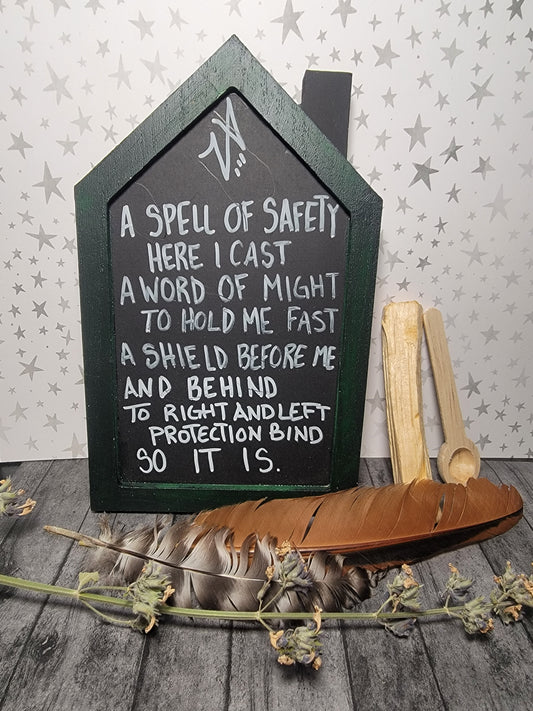 A SPELL OF SAFETY
HERE I CAST
A WORD OF MIGHT
TO HOLD ME FAST
A SHIELD BEFORE ME
AND BEHIND
TO RIGHT AND LEFT
PROTECTION BIND
SO IT IS.